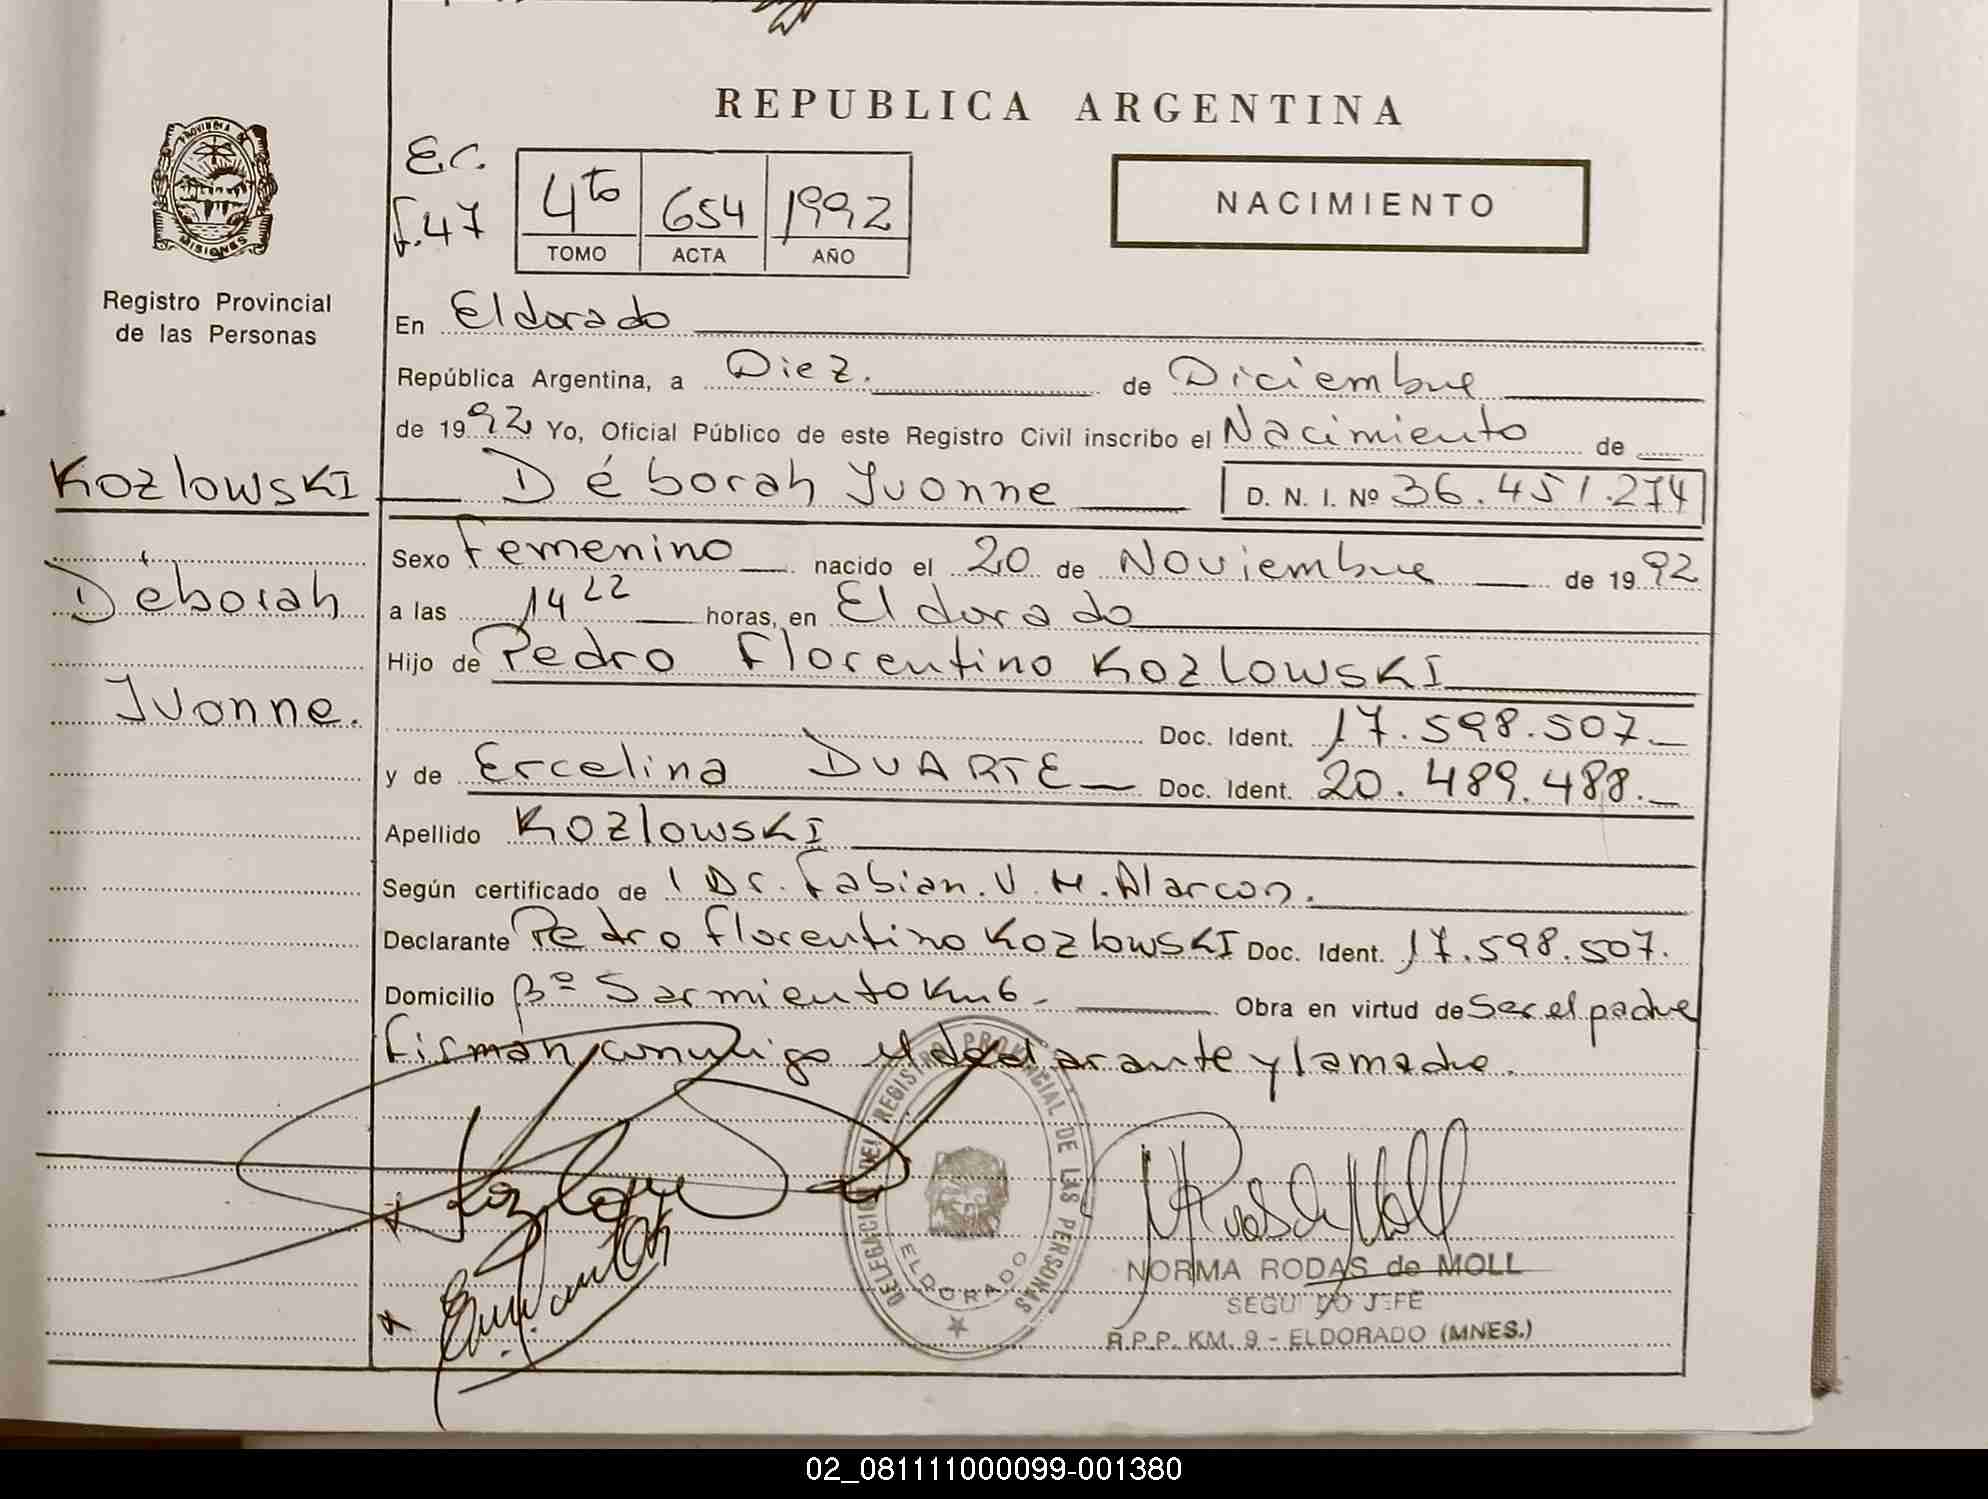 REPUBLICA ARGENTINA
PROVINCIA DE
MISIONES
Registro Provincial
de las Personas
E.C.
f.47
4to 654 1992
TOMO ACTA AÑO
NACIMIENTO
En Eldorado
República Argentina, a Diez. de Diciembre
de 1992 Yo, Oficial Público de este Registro Civil inscribo el Nacimiento de
KozlowskI
Déborah Ivonne D. N. I. Nº 36.451.274
Sexo Femenino nacido el 20 de Noviembre de 1992
Déborah
a las 14 22 horas, en Eldorado
Hijo de Pedro Florentino KozlowskI
Ivonne.
Doc. Ident. 17.598.507.
y de Ercelina DUARTE Doc. Ident. 20.489.488.
Apellido KozlowskI
Según certificado de Dr. Fabian. V. H. Alarcon.
Declarante Pedro Florentino KozlowskI Doc. Ident. 17.598.507.
Domicilio Bº Sarmiento Km 6 - Obra en virtud de Ser el padre
Firman conmigo el declarante y la madre.
DELEGACION DEL REGISTRO PROVINCIAL DE LAS PERSONAS
ELDORADO
NORMA RODAS de MOLL
SEGUNDO JEFE
R.P.P. KM. 9 - ELDORADO (MNES.)
02_081111000099-001380